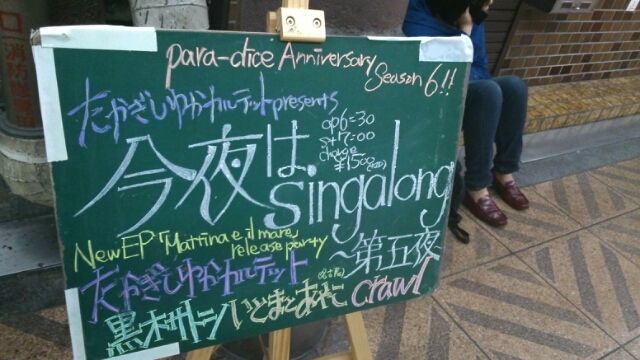 para-dice Anniversary
Season 6!!
たかぎしゆかカルテット presents
op 6:30
st 7:00
charge
¥1500
今夜は、singalong
〜第五夜〜
New EP「Mattina e il mare」
release party
たかぎしゆかカルテット
(名古屋) crawl
黒木サトシ いとまとあやこ